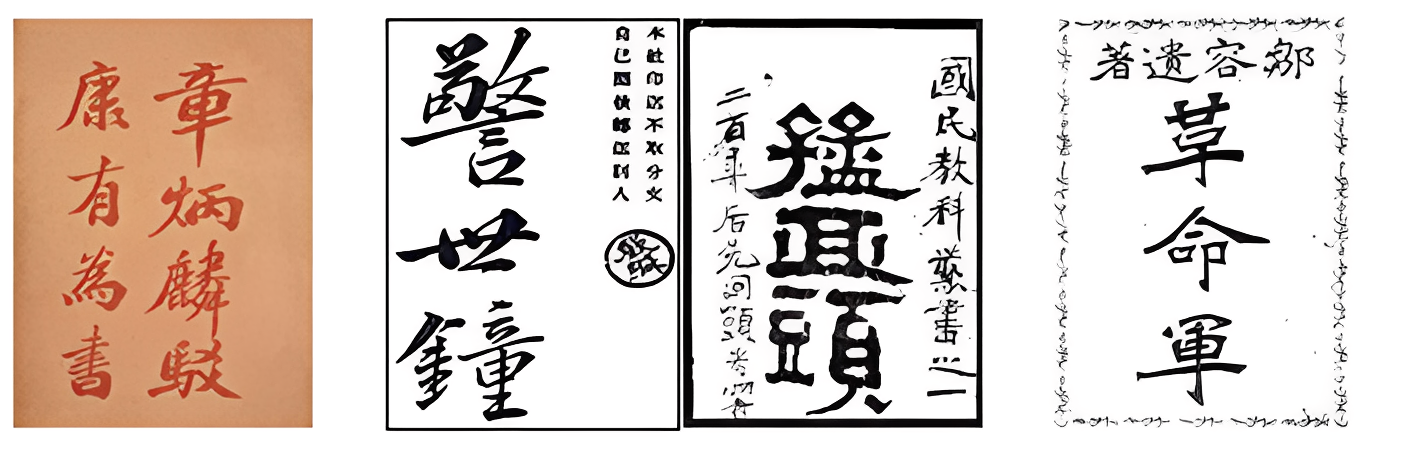 章炳麟駁
康有為書
本社印送不取分文
自己 人
警世鐘
國民教科叢書之一
猛回頭
二百年后先回頭
鄒容遺著
革命軍